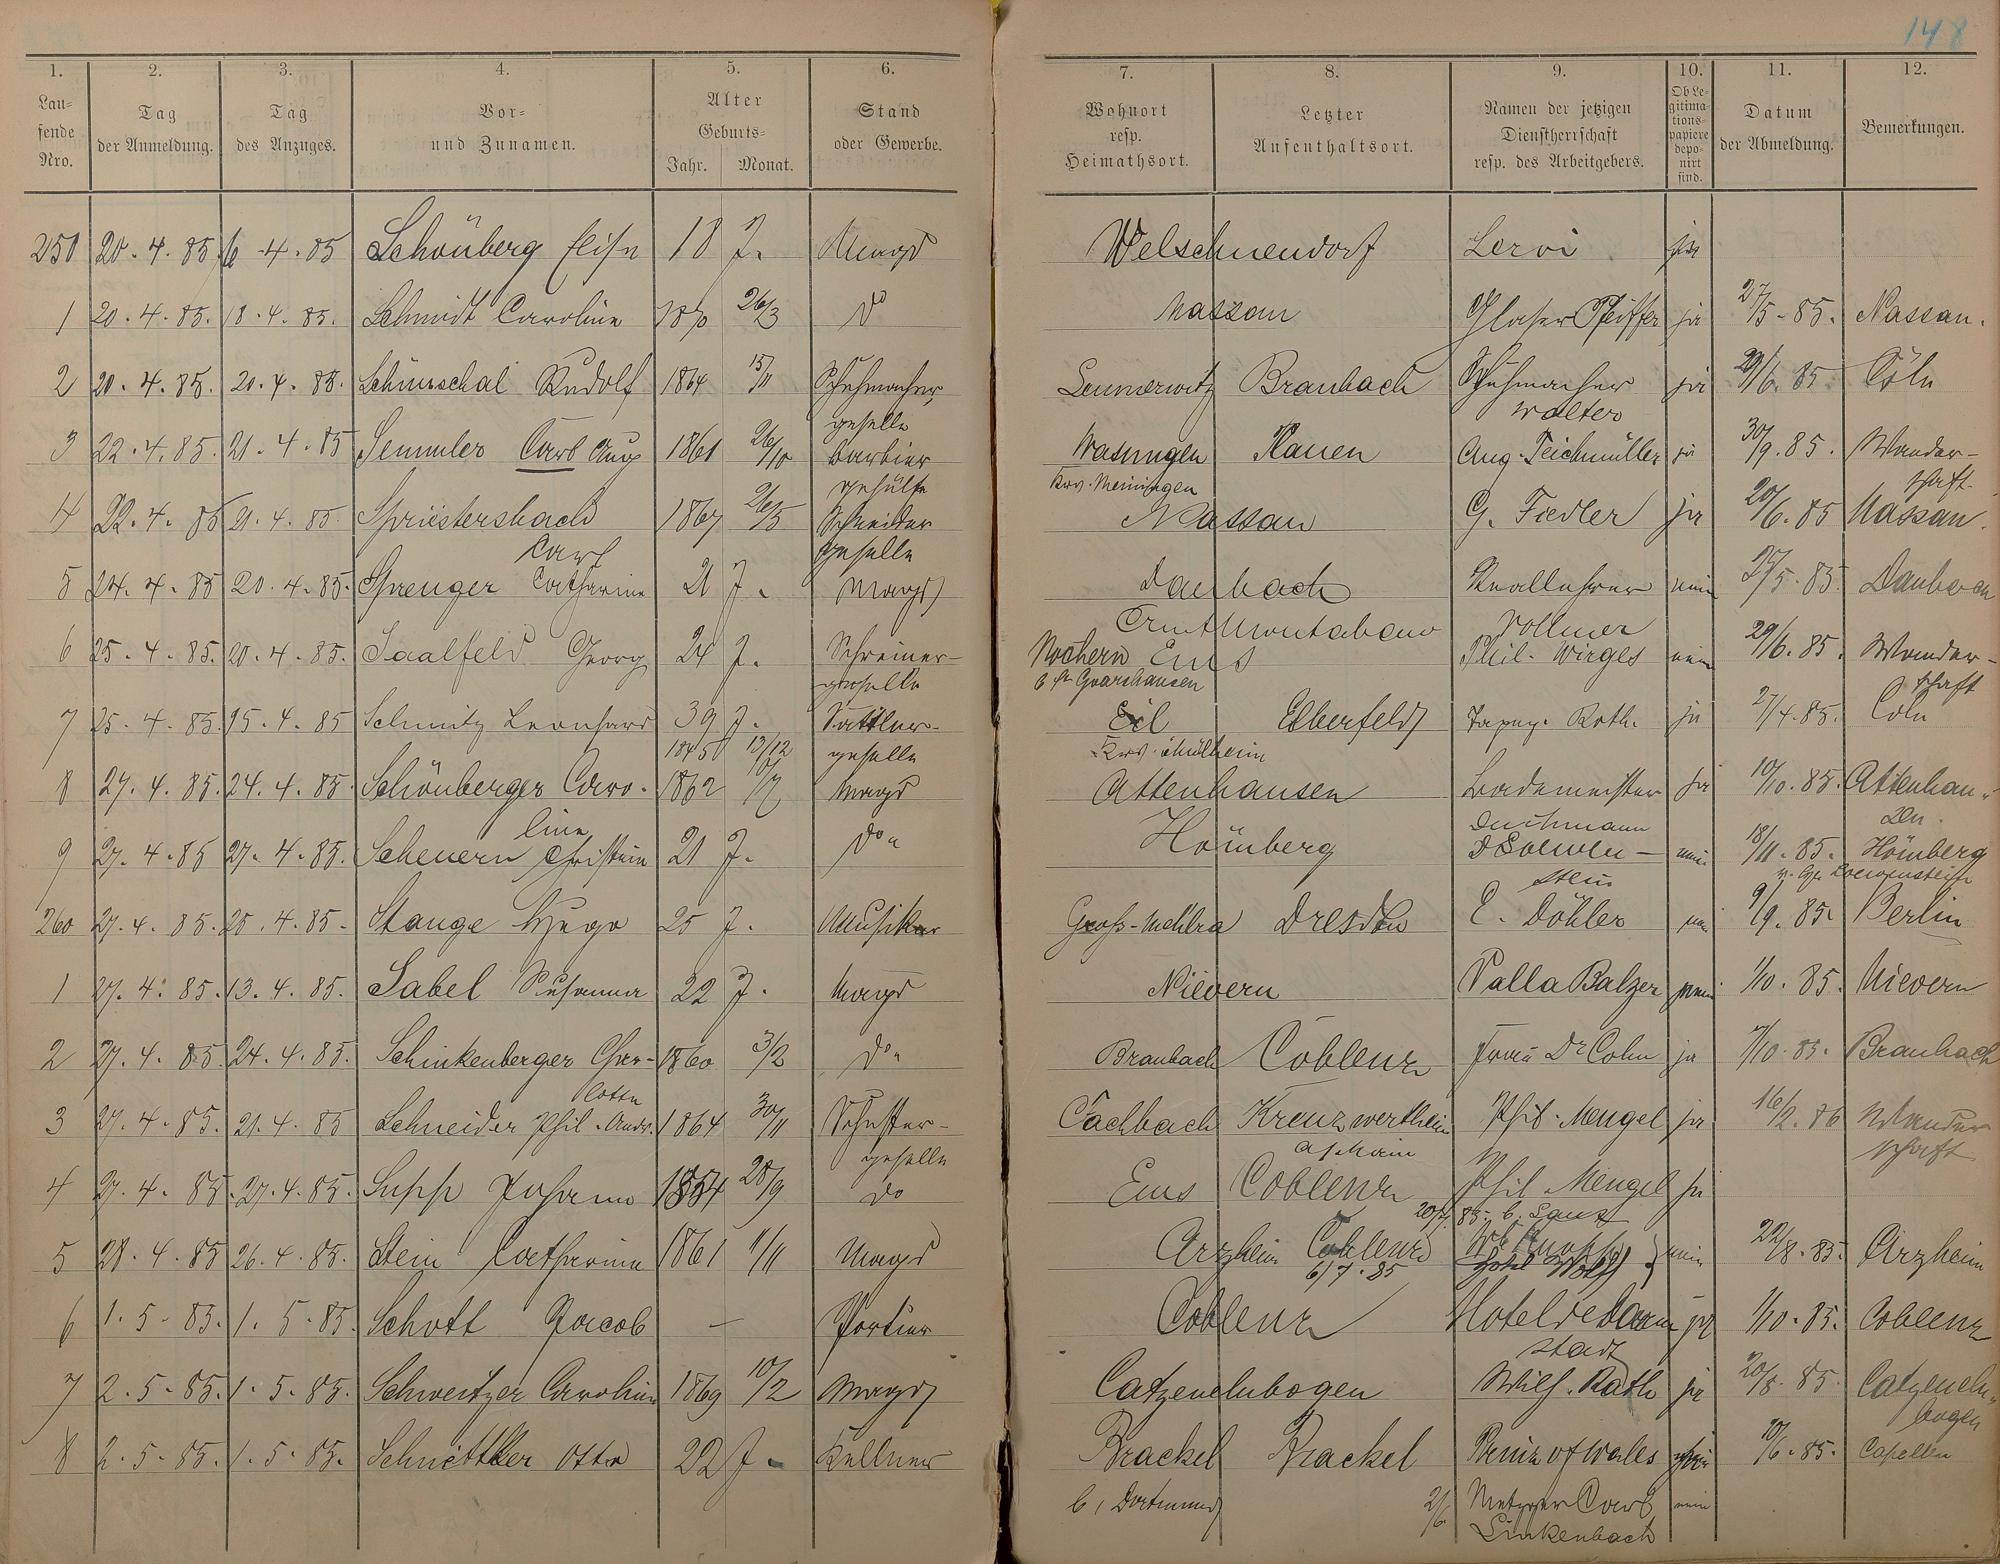 148
1. 2. 3. 4. 5. 6. 7. 8. 9. 10. 11. 12.
Laufende Nro. Tag der Anmeldung. Tag des Anzuges. Vor- und Zunamen. Alter Geburts- Jahr. Monat. Stand oder Gewerbe. Wohnort resp. Heimathsort. Letzter Aufenthaltsort. Namen der jetzigen Dienstherrschaft resp. des Arbeitgebers. Ob Legitimationspapiere deponirt sind. Datum der Abmeldung. Bemerkungen.
250 20.4.85. 6.4.85 Schönberg Elise 18 J. Magd Welschneudorf ja
1 20.4.85. 18.4.85. Schmidt Caroline 26/3 do Nassau Glaser Pfeiffer ja 27/5.85. Nassau.
2 20.4.85. 20.4.85. Rudolf 1864 15/11 Schuhmacher Braubach Schuhmacher ja 29/6.85. Cöln
geselle Walter
3 22.4.85. 21.4.85 Semmler Carl Aug 1861 26/10 Barbier Wasungen Plauen Aug. Teichmüller ja 30/9.85. Wander-
gehülfe Krs. Meiningen schaft.
4 22.4.85 21.4.85. Spriestersbach 1867 26/5 Schneider Nassau G. Fiedler ja 20/6.85 Nassau.
Carl geselle
5 24.4.85 20.4.85. Sprenger Catharine 21 J. Magd Daubach Reallehrer nein 27/5.85. Daubach
Amt Montabaur Vollmer
6 25.4.85. 20.4.85. Saalfeld Georg 24 J. Schreiner- Nochern Ems Phil. Wirges nein 29/6.85. Wander-
geselle b. St. Goarshausen schaft
7 25.4.85. 15.4.85 Schmitz Leonhard 39 J. Sattler- Eil Elberfeld Tapez. Roth. ja 27/4.85. Coln
1845 13/12 geselle Krs. Mülheim
8 27.4.85. 24.4.85. Schönberger Caro- 1862 Magd Attenhausen Bademeister ja 10/10.85. Attenhau-
line sen.
9 27.4.85 27.4.85. Scheuern Christine 21 J. do Hömberg nein 18/11.85. Hömberg
stein
260 27.4.85. 25.4.85. Stange Hugo 25 J. Musiker Gross-Mehlra Dresden E. Döhler nein 9/9.85. Berlin
1 27.4.85. 13.4.85. Sabel Susanna 22 J. Magd Nievern Balzer nein 1/10.85. Nievern
2 27.4.85. 24.4.85. Schinkenberger Char- 1860 3/2 do Braubach Coblenz Frau Dr Cohn ja 7/10.85. Braubach
lotte
3 27.4.85. 21.4.85 Schneider Phil. Andr. 1864 30/11 Schuster- Fachbach Kreuzwertheim Phil. Mengel ja 16/2.86 Wander
geselle a/Main schaft
4 27.4.85. 27.4.85. Supp Johann 1854 28/9 do Ems Coblenz Phil Mengel ja
5 28.4.85 26.4.85. Stein Catharina 1861 11/11 Magd Arzheim Coblenz nein 22/8.85. Arzheim
6/7.85 Hotel
6 1.5.85. 1.5.85. Schott Jacob — Portier Coblenz Hotel de Darm ja 1/10.85. Coblenz
stadt
7 2.5.85. 1.5.85. Schweitzer Caroline 1869 10/2 Magd Catzenelnbogen Wilh. Rath ja 20/8.85. Catzeneln-
bogen
8 2.5.85. 1.5.85. Otto 22 J. Kellner Brackel Brackel Prinz of Wales 10/6.85. Capellen
b/ Dortmund 2/6 Metzger Carl nein
Linkenbach